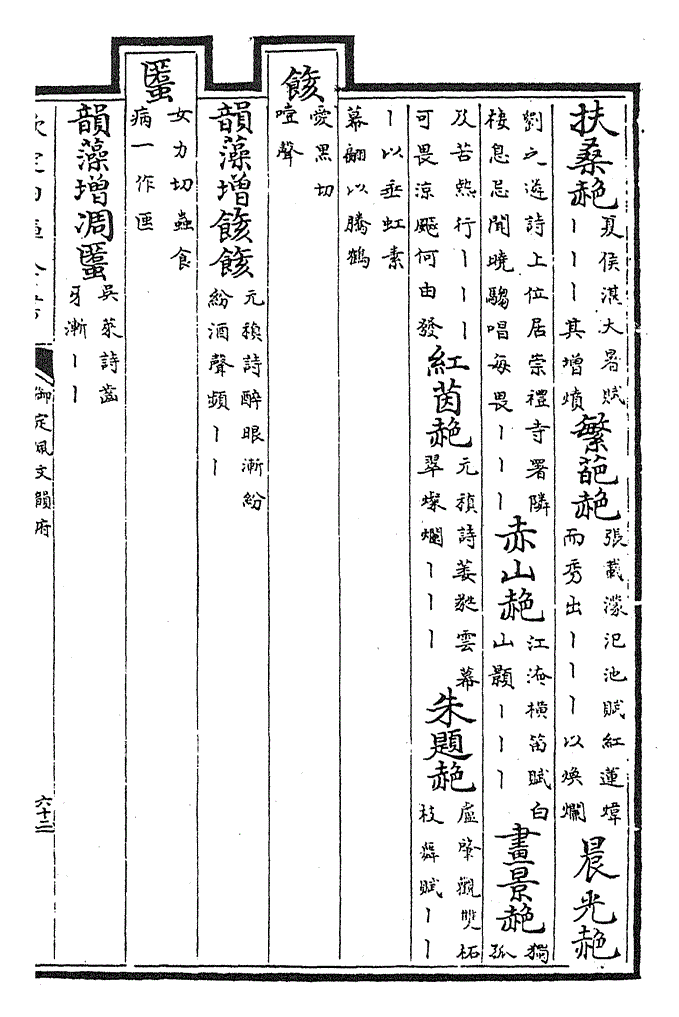 扶桑赩
夏侯湛大暑賦
丨丨丨其增燌
繁葩赩
張載濛汜池賦紅蓮煒
而秀出丨丨丨以煥爛
晨光赩
劉之遴詩上位居崇禮寺署隣
棲息忌聞曉騶唱每畏丨丨丨
赤山赩
江淹橫笛賦白
山顥丨丨丨
晝景赩
獨
孤
及苦熱行丨丨丨
可畏涼飃何由發
紅茵赩
元稹詩萎蕤雲幕
翠燦爛丨丨丨
朱題赩
盧肇觀雙柘
枝舞賦丨丨
丨以垂虹素
幕翩以騰鶴
餩
愛黑切
噎聲
韻藻增餩餩
元稹詩醉眼漸紛
紛酒聲頻丨丨
䘌
女力切蟲食
病一作
韻藻增凋䘌
吳萊詩齒
牙漸丨丨
御定佩文韻府
六十二